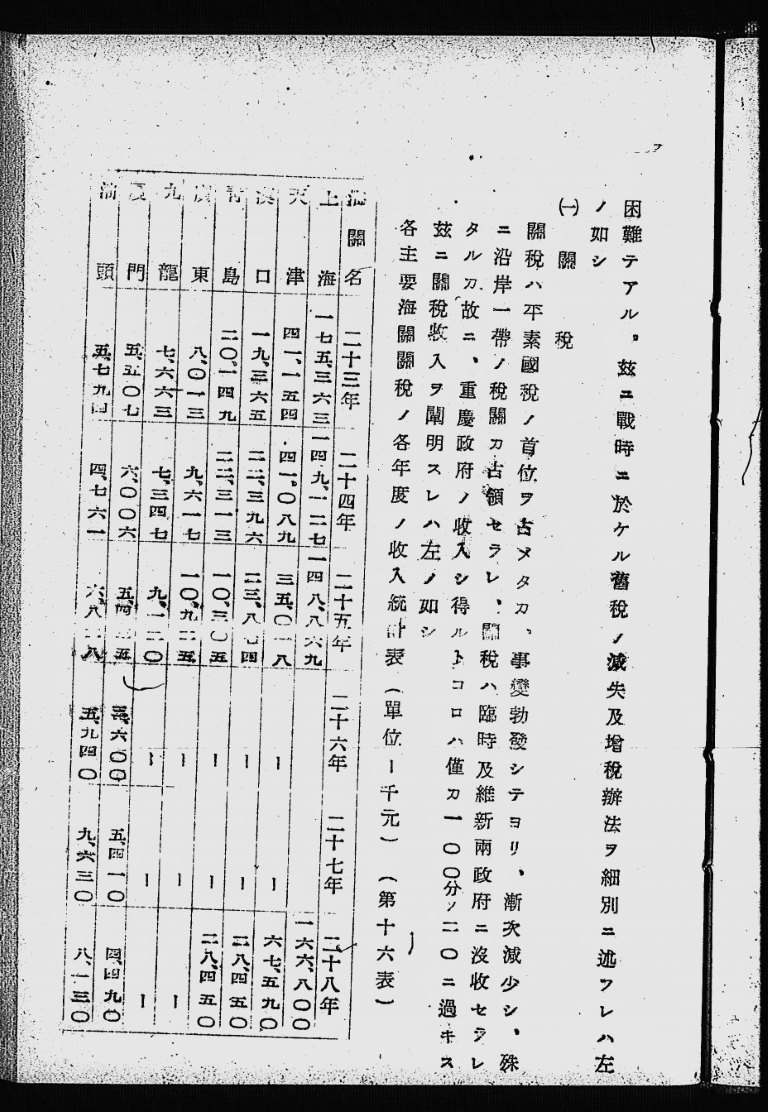 困難テアル。茲ニ戰時ニ於ケル舊稅ノ減失及增稅辦法ヲ細別ニ述フレハ左
ノ如シ
㈠ 關 稅
關稅ハ平素國稅ノ首位ヲ占メタカ、事變勃發シテヨリ、漸次減少シ、殊
ニ沿岸一帶ノ稅關カ占領セラレ、關稅ハ臨時及維新兩政府ニ沒收セラレ
タルカ故ニ、重慶政府ノ收入シ得ルトコロハ僅カ一〇〇分ノ二〇ニ過キス
茲ニ關稅收入ヲ闡明スレハ左ノ如シ
各主要海關關稅ノ各年度ノ收入統計表(單位ー千元)(第十六表)
海關名 二十三年 二十四年 二十五年 二十六年 二十七年 二十八年
上海 一七五、三六三 一四九、一二七 一四八、八六九 一六六、八〇〇
天津 四一、一五四 四一、〇八九 三五、〇一八 ー ー 六七、五九〇
漢口 一九、三六五 二二、三九六 二三、八七四 ー ー 二八、四五〇
靑島 二〇、一四九 二二、三一三 一〇、三〇五 ー ー 二八、四五〇
廣東 八、〇一三 九、六一七 一〇、九二五 ー ー ー
九龍 七、六六三 七、三四七 九、一二〇 ー ー ー
廈門 五、五〇七 六、〇〇六 三、六〇〇 五、四一〇 四、四九〇
汕頭 五、七九四 四、七六一 六、八二八 五、九四〇 九、六三〇 八、一三〇